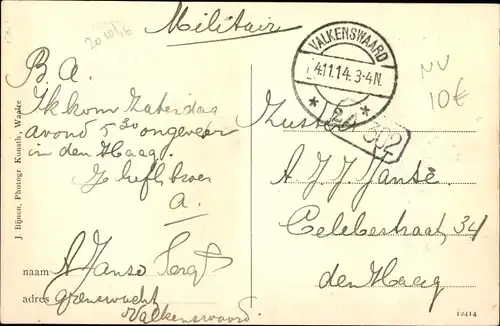 Militair
VALKENSWAARD
4.11.14.3-4N.
NV
10€
B. A.
Ik kom Zaterdag
avond 5 30 ongeveer
in den Haag.
Je liefh. broer
A.
Zuster
302
A J J Janse
Celebesstraat, 34
den Haag
naam A Janse Sergt
adres grenswacht
Valkenswaard.
J. Bijnen, Photogr Kunsth., Waalre
12414